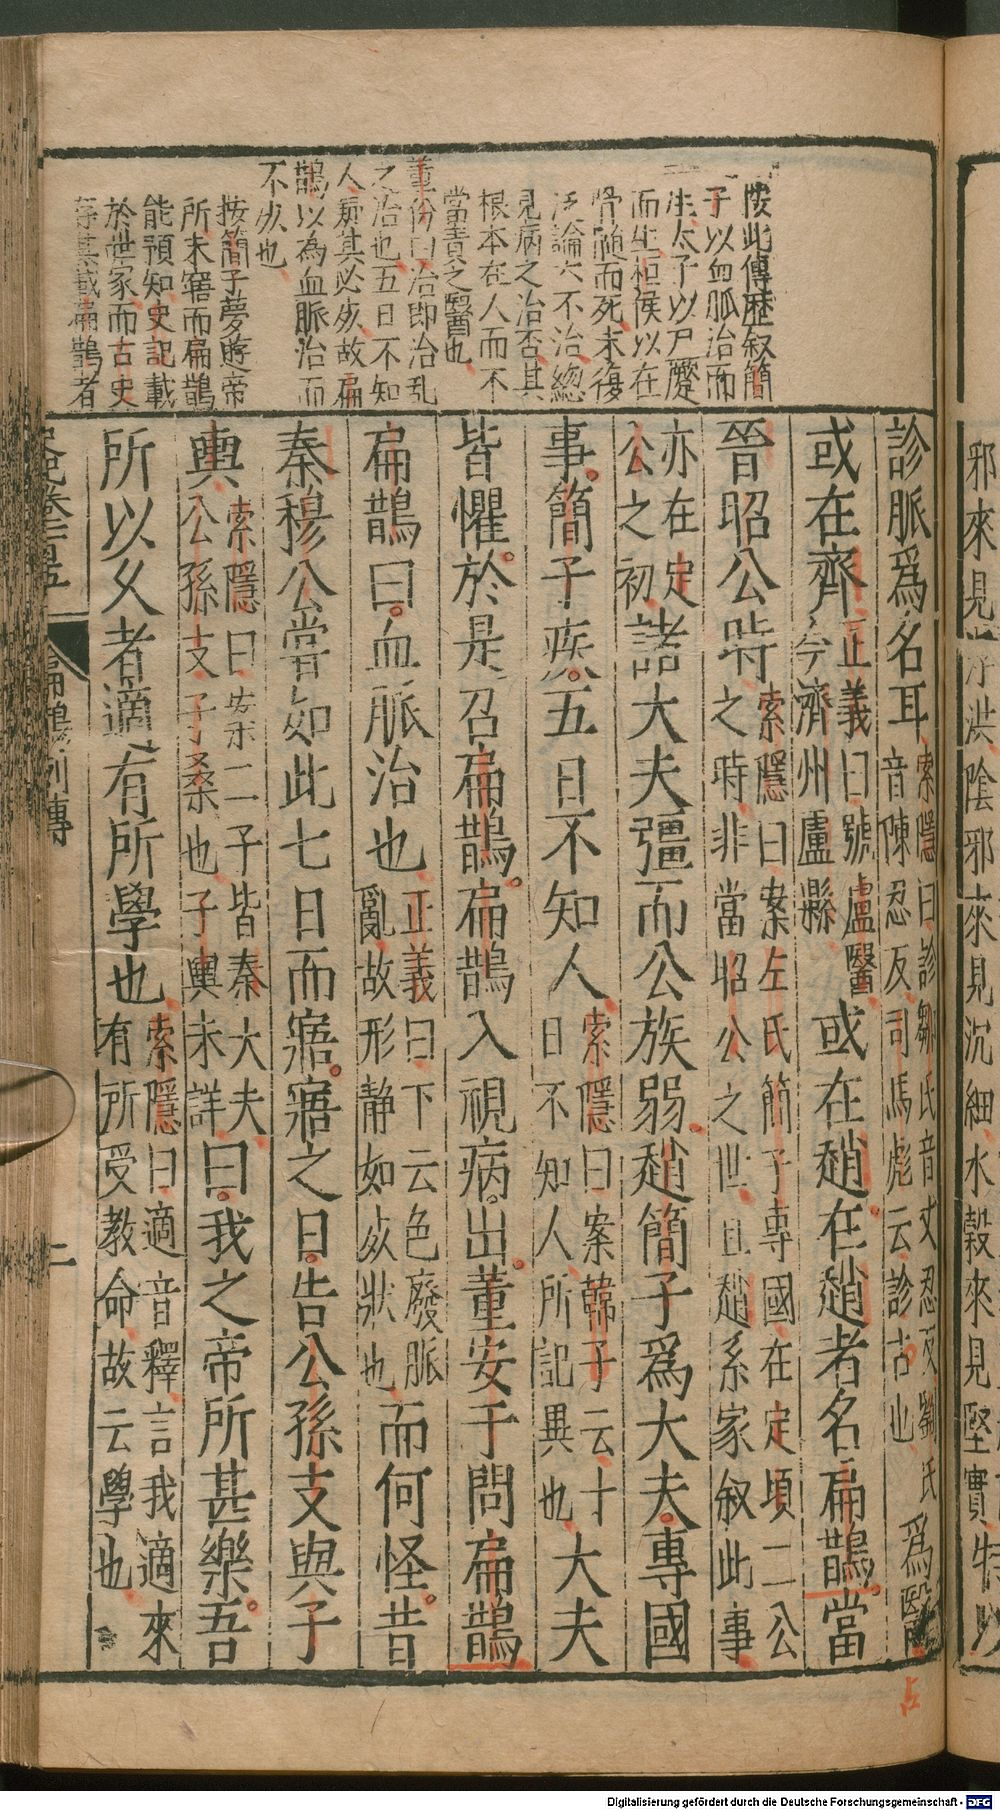 按此傳歷叙簡
子以血脈治而
生太子以尸蹷
而生桓侯以在
骨髓而死末復
泛論六不治總
見病之治否其
根本在人而不
當責之醫也
董份曰治即治亂
之治也五日不知
人疑其必死故扁
鵲以為血脈治而
不死也
按簡子夢遊帝
所未寤而扁鵲
能預知史記載
於世家而古史
其載扁鵲者
診脈爲名耳索隱曰診鄒氏音丈忍反劉氏
音陳忍反司馬彪云診占也爲醫
或在齊正義曰號盧醫
今濟州盧縣或在趙在趙者名扁鵲當
晉昭公時索隱曰案左氏簡子專國在定頃二公
之時非當昭公之世且趙系家叙此事
亦在定
公之初諸大夫彊而公族弱趙簡子爲大夫專國
事簡子疾五日不知人索隱曰案韓子云十
日不知人所記異也大夫
皆懼於是召扁鵲扁鵲入視病出董安于問扁鵲
扁鵲曰血脈治也正義曰下云色廢脈
亂故形静如死狀也而何怪昔
秦穆公嘗如此七日而寤寤之日告公孫支與子
輿索隱曰案二子皆秦大夫
公孫支子桑也子輿未詳曰我之帝所甚樂吾
所以久者適有所學也索隱曰適音釋言我適來
有所受教命故云學也
扁鵲列傳
二
邪來見浮洪陰邪來見沉細水穀來見堅實
Digitalisierung gefördert durch die Deutsche Forschungsgemeinschaft - DFG